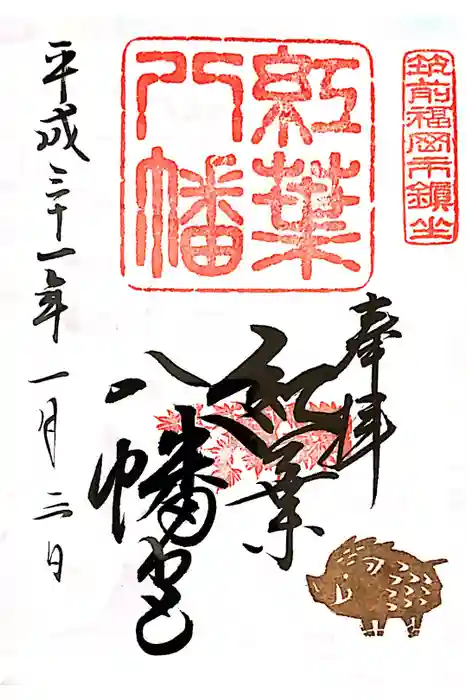 筑前福岡市鎮坐
奉拝
紅葉
八幡
紅葉
八幡宮
平成三十一年一月二日